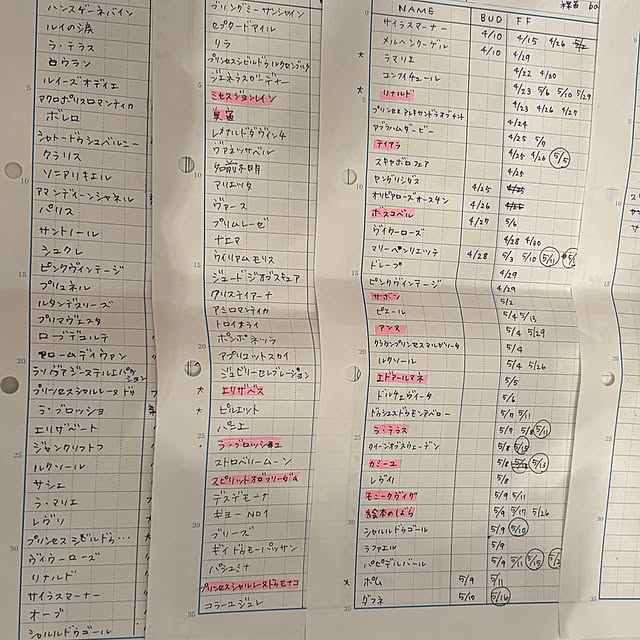 ハンスゲーネバイン
ルイの涙
ラ・テラス
ロウラン
ルイーズオディエ
アクロポリスロマンティカ
ボレロ
シャトードゥシュベルニー
クラリス
ソニアリキエル
アマンディーンシャネル
パリス
サントノール
シュクレ
ピンクヴィンテージ
プリュネル
ルタンデスリーズ
プリマヴェスタ
ローブデコルテ
アロームデイヴァン
プリンセスシャルレーヌ ドゥ
ラ・ブロッショ
エリザベート
ジャンクリストフ
ルクソール
サシェ
ラ・マリエ
レヴリ
プリンセス シビルドゥ…
ヴィウーローズ
リナルド
サイラスマーナー
オーブ
シャルルドゥゴール
ブリングミーサンシャイン
セプタードアイル
リラ
プリンセスシビルドゥルクセンブルク
ジェネラスガーデナー
ミセスジョンレイン
レオナルドダヴィンチ
ヴァネッサベル
名前不明
アリエッタ
ヴァース
プリムレーゼ
ナエマ
ウィリアムモリス
ジュードジオブスキュア
クリスティアーナ
アミロマンティカ
トロイメライ
ポンポネッラ
アプリコットスカイ
ジュビリーセレブレーション
* エリザベス
* ピルエット
パシエ
ラ・ブロッショ
ストロベリームーン
スピリットオブフリーダム
デスデモーナ
ギヨーNO1
ブリーズ
ギィドゥモーパッサン
パシュミナ
プリンセスシャルレーヌドゥモナコ
コラーユジュレ
NAME BUD FF
サイラスマーナー 4/10 4/15 4/26
メルヘンケーゲル 4/10 4/29
* ラマリエ 4/22 4/30
コンフィチュール 4/23 5/6 5/10 5/29
* リナルド 4/23 4/26 4/27
プリンセスアレキサンドラオブケント 4/24
アブラハムダービー 4/25 5/9
ティアラ 4/25 4/26 5/5
スキャボロフェア 4/25
ヤングリシダス 4/25
オリビアローズオースチン 4/26
ボスコベル 4/27 5/6
ヴィウーローズ 4/28 4/30
マリーヘンリエッテ 4/28 5/3 5/10 5/11
ドレープ 4/29
ピンクヴィンテージ 4/29
サボン 5/2
ピエール 5/4 5/13
アンヌ 5/4 5/29
クラウンプリンセスマルガリータ 5/4
ルクソール 5/4 5/26
エドアールマネ 5/5
ドルチェヴィータ 5/6
ドゥシェスドゥモンテベロー 5/7 5/11
ラ・テラス 5/9 5/8 5/11
クイーンオブスウェーデン 5/8 5/15
カミーユ 5/8 5/13
レヴリ 5/8
モニークダヴィグ 5/9 5/11
絵本のばら 5/9 5/17 5/26
シャルルドゥゴール 5/9 5/10
ラファエル 5/9
パピデルバール 5/9 5/11 5/15
* ポム 5/9 5/11
ダフネ 5/10 5/16